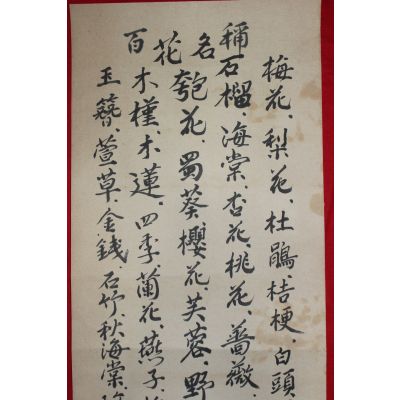 百花名稱
梅花、梨花、杜鵑、桔梗、白頭
石榴、海棠、杏花、桃花、薔薇、
匏花、蜀葵、櫻花、芙蓉、野
木槿、木蓮、四季蘭花、燕子
玉簪、萱草、金錢、石竹、秋海棠、